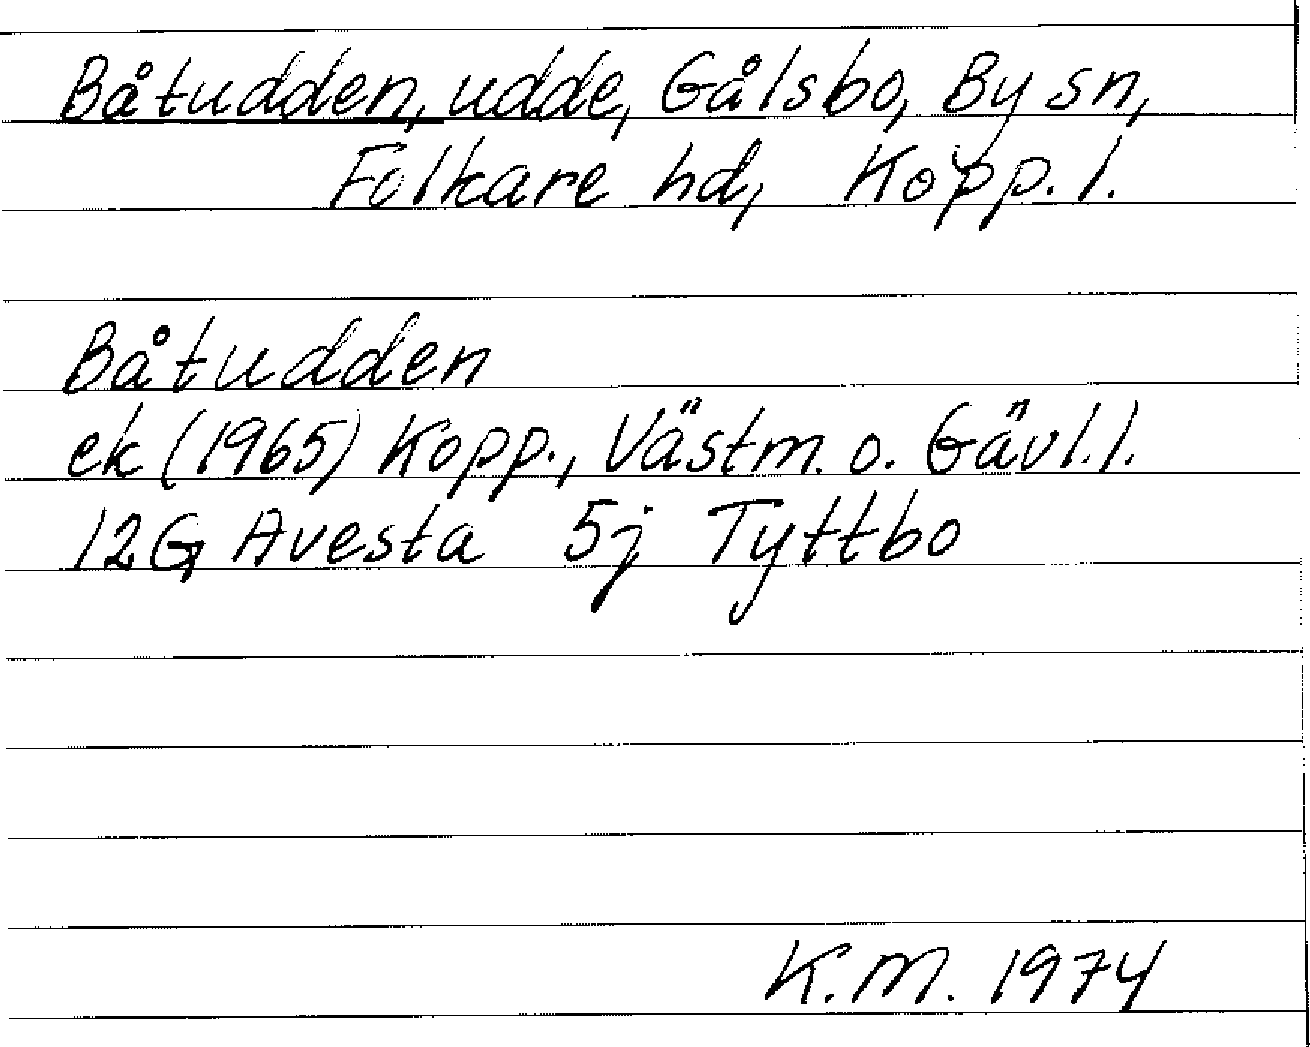 Båtudden, udde, Gålsbo, By sn,
Folkare hd, Kopp. l.
Båtudden
ek (1965) Kopp., Västm. o. Gävl. l.
12G Avesta 5j Tyttbo
K.M. 1974